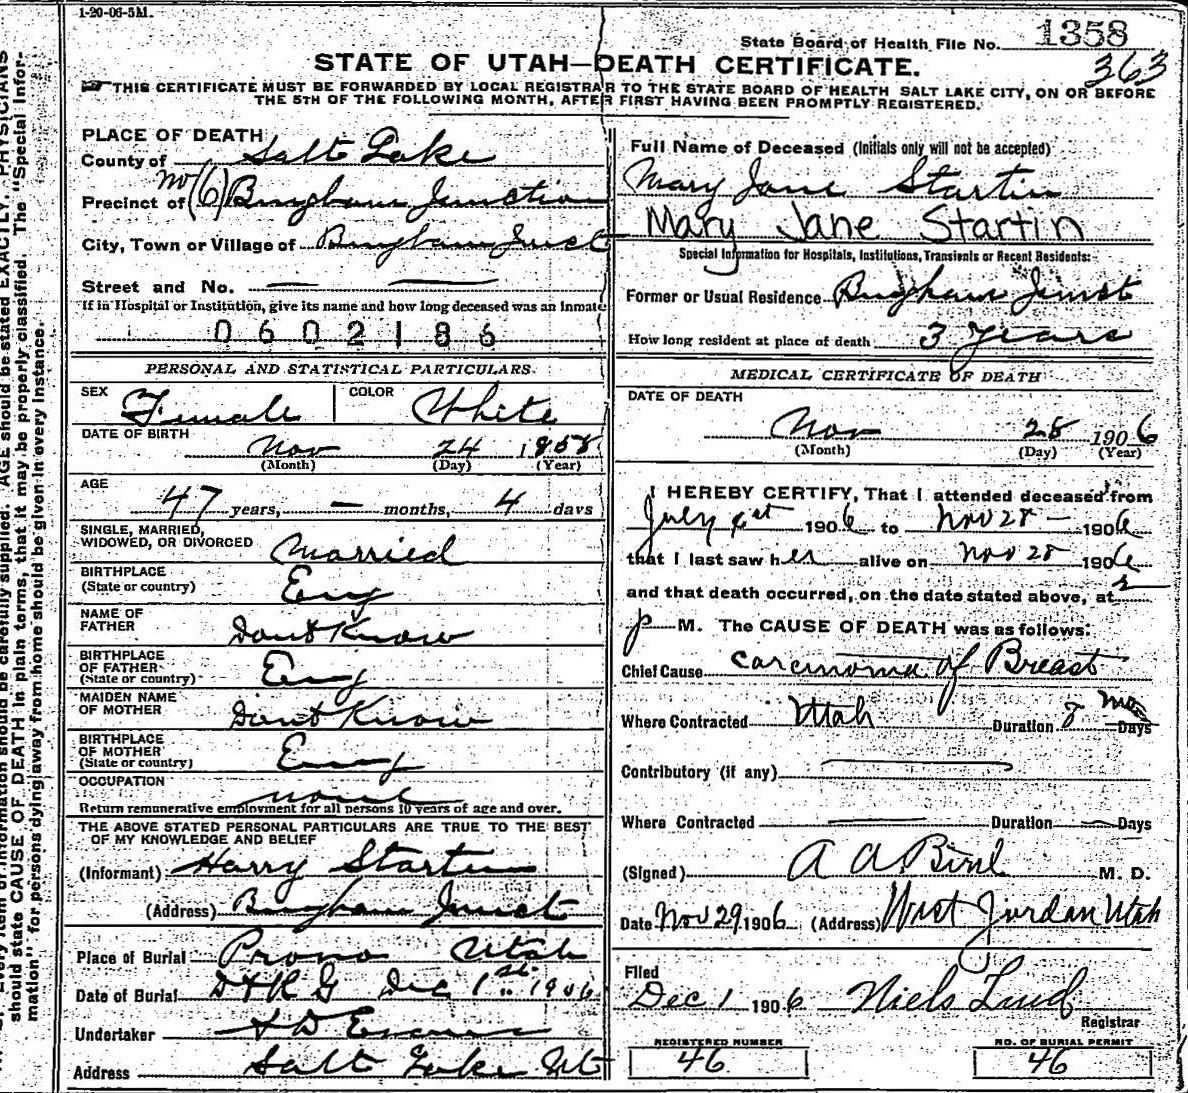 1-20-06-5M.
State Board of Health File No. 1358
363
STATE OF UTAH—DEATH CERTIFICATE.
THIS CERTIFICATE MUST BE FORWARDED BY LOCAL REGISTRAR TO THE STATE BOARD OF HEALTH SALT LAKE CITY, ON OR BEFORE
THE 5TH OF THE FOLLOWING MONTH, AFTER FIRST HAVING BEEN PROMPTLY REGISTERED.
PLACE OF DEATH
County of Salt Lake
Precinct of no (6) Bingham Junction
City, Town or Village of Bingham Junct
Street and No. — —
If in Hospital or Institution, give its name and how long deceased was an inmate
0602186
PERSONAL AND STATISTICAL PARTICULARS.
SEX Female COLOR White
DATE OF BIRTH
Nov 24 1858
(Month) (Day) (Year)
AGE
47 years, — months, 4 days
SINGLE, MARRIED,
WIDOWED, OR DIVORCED Married
BIRTHPLACE
(State or country) Eng
NAME OF
FATHER Dont Know
BIRTHPLACE
OF FATHER
(State or country) Eng
MAIDEN NAME
OF MOTHER Dont Know
BIRTHPLACE
OF MOTHER
(State or country) Eng
OCCUPATION
none
Return remunerative employment for all persons 10 years of age and over.
THE ABOVE STATED PERSONAL PARTICULARS ARE TRUE TO THE BEST
OF MY KNOWLEDGE AND BELIEF
(Informant) Harry Startin
(Address) Bingham Junct
Place of Burial Provo Utah
Date of Burial D & R G Dec 1st 1906
Undertaker S D Evans
Address Salt Lake Ut
Full Name of Deceased (Initials only will not be accepted)
Mary Jane Startin
Mary Jane Startin
Special Information for Hospitals, Institutions, Transients or Recent Residents:
Former or Usual Residence Bingham Junct
How long resident at place of death 3 years
MEDICAL CERTIFICATE OF DEATH
DATE OF DEATH
Nov 28 1906
(Month) (Day) (Year)
I HEREBY CERTIFY, That I attended deceased from
July 1st 1906 to Nov 28 — 1906
that I last saw her alive on Nov 28 1906
and that death occurred, on the date stated above, at 2
p M. The CAUSE OF DEATH was as follows:
Chief Cause carcinoma of Breast
Where Contracted Utah Duration 8 mo Days
Contributory (if any) —
Where Contracted — Duration — Days
(Signed) A A Bird M. D.
Date Nov 29 1906 (Address) West Jordan Utah
Filed
Dec 1 1906 Niels Lind
Registrar
REGISTERED NUMBER
46
NO. OF BURIAL PERMIT
46
should state CAUSE OF DEATH in plain terms, that it may be properly classified. The "Special Infor-
mation" for persons dying away from home should be given in every instance.